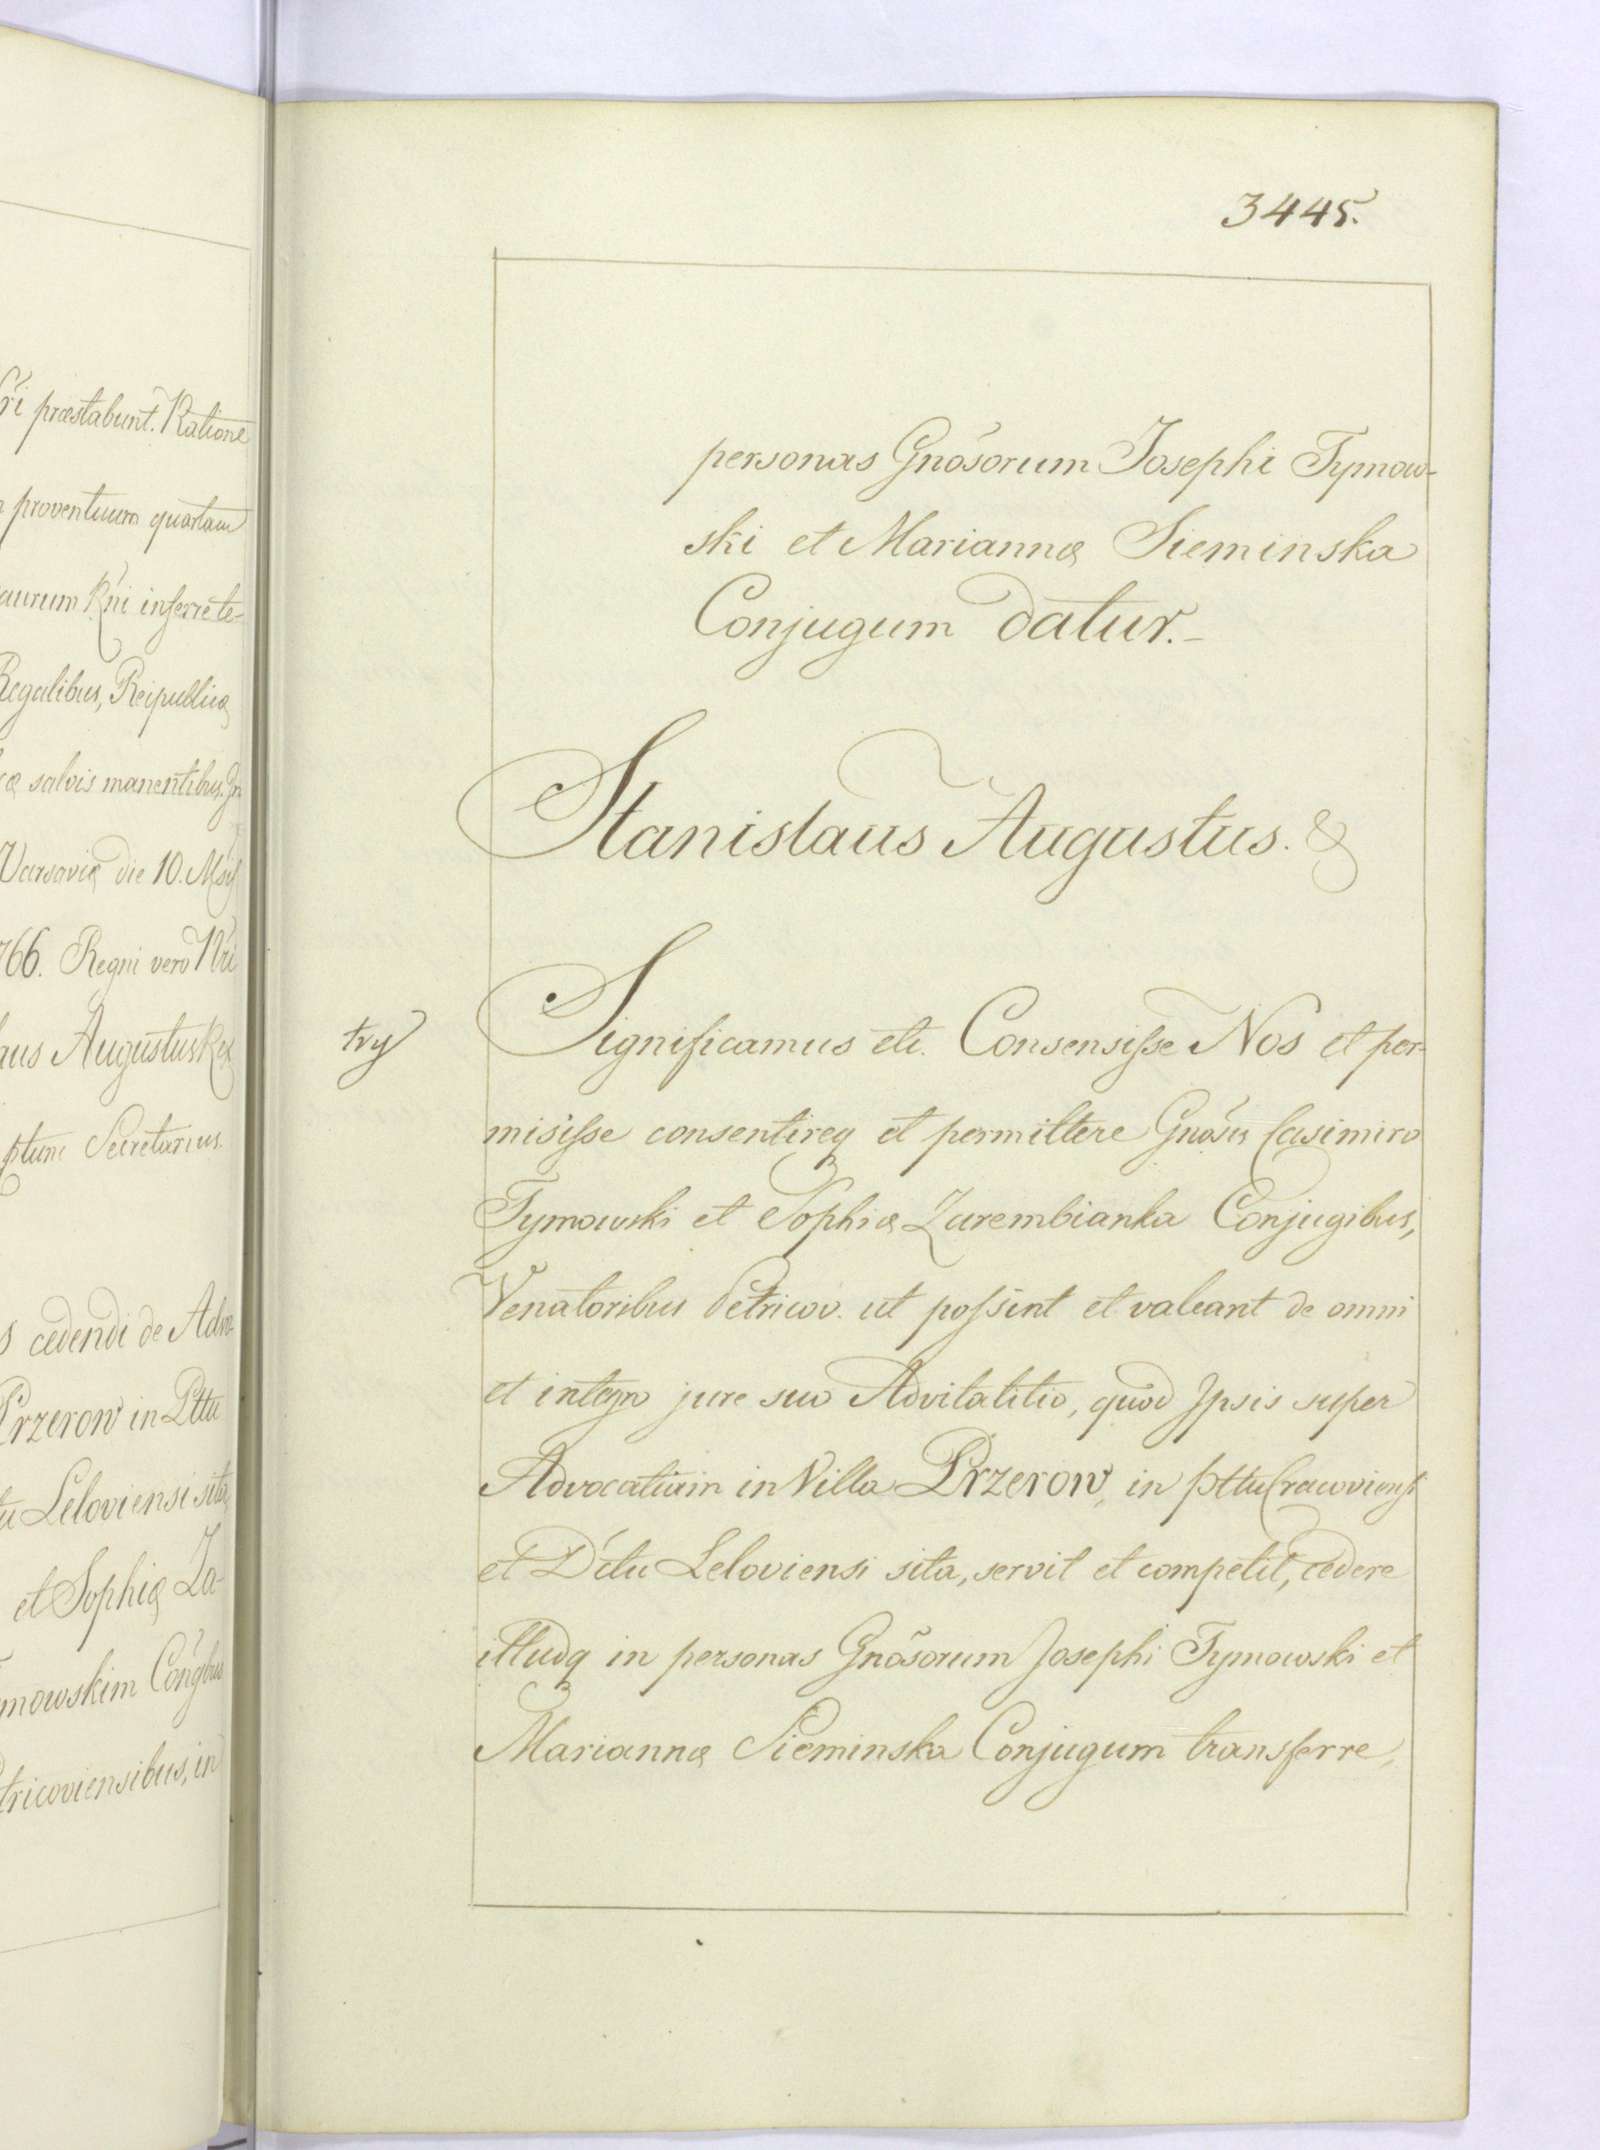 ri præstabunt. Ratione
proventuum quartam
aurum Rni inferre te-
Regalibus, Reipublicæ
salvis manentibus. Jn
Varsaviæ die 10. Msis
766. Regni vero Nri
aus Augustus Rex
ptum Secretarius.
s cedendi de Advo-
Przerow in Pttu
tu Leloviensi sita,
et Sophiæ Za-
mowskim Congbus
tricoviensibus, in
3445.
personas Gnõsorum Josephi Tymow-
ski et Mariannæ Sieminska
Conjugum datur.-
Stanislaus Augustus. &
try
Significamus etc. Consensisse Nos et per-
misisse consentireq et permittere Gnõsis Casimiro
Tymowski et Sophiæ Zarembianka Conjugibus,
Venatoribus Petricov. ut possint et valeant de omni
et integro jure suo Advitalitio, quod Jpsis super
Advocatiam in Villa Przerow, in pttu Cracoviensi
et Dctu Leloviensi sita, servit et competit, cedere
illudq in personas Gnõsorum Josephi Tymowski et
Mariannæ Sieminska Conjugum transferre,